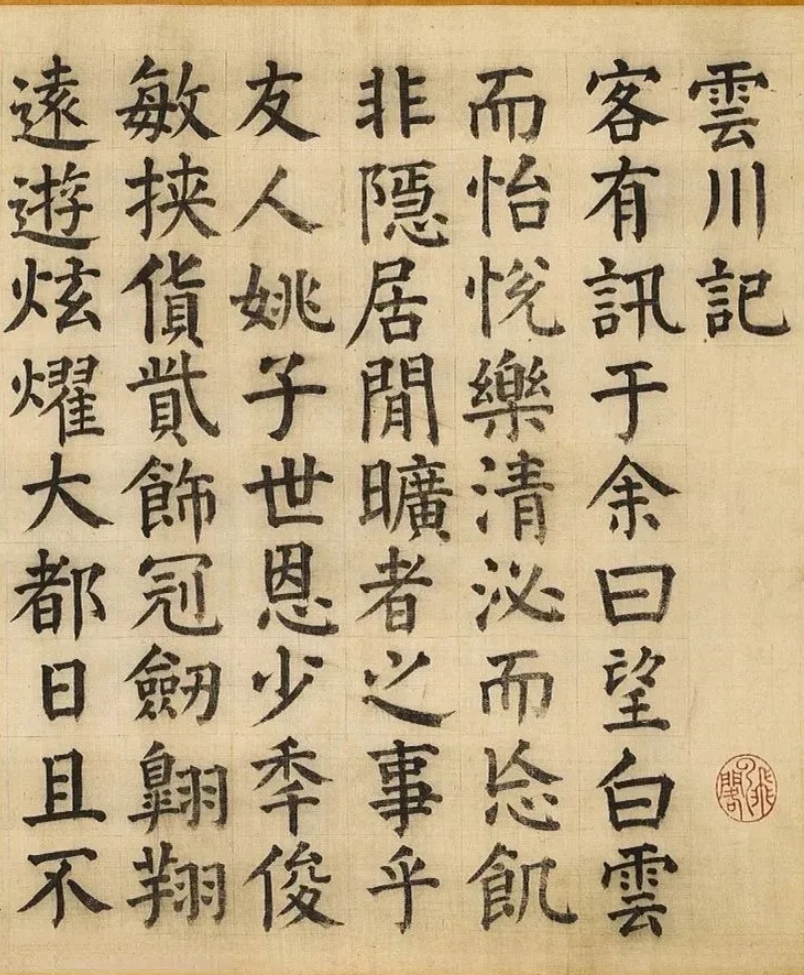 雲川記
客有訊于余曰望白雲
而怡悅樂清泌而忘飢
非隱居閒曠者之事乎
友人姚子世恩少秊俊
敏挟貨貲飾冠劒翺翔
遠遊炫燿大都日且不